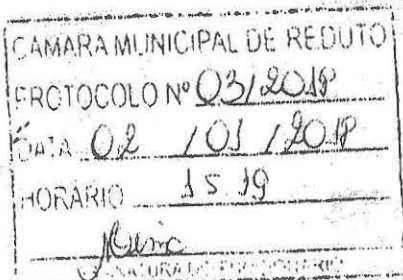 CAMARA MUNICIPAL DE REDUTO
PROTOCOLO Nº 03/2018
DATA 02 / 01 / 2018
HORÁRIO 15 19